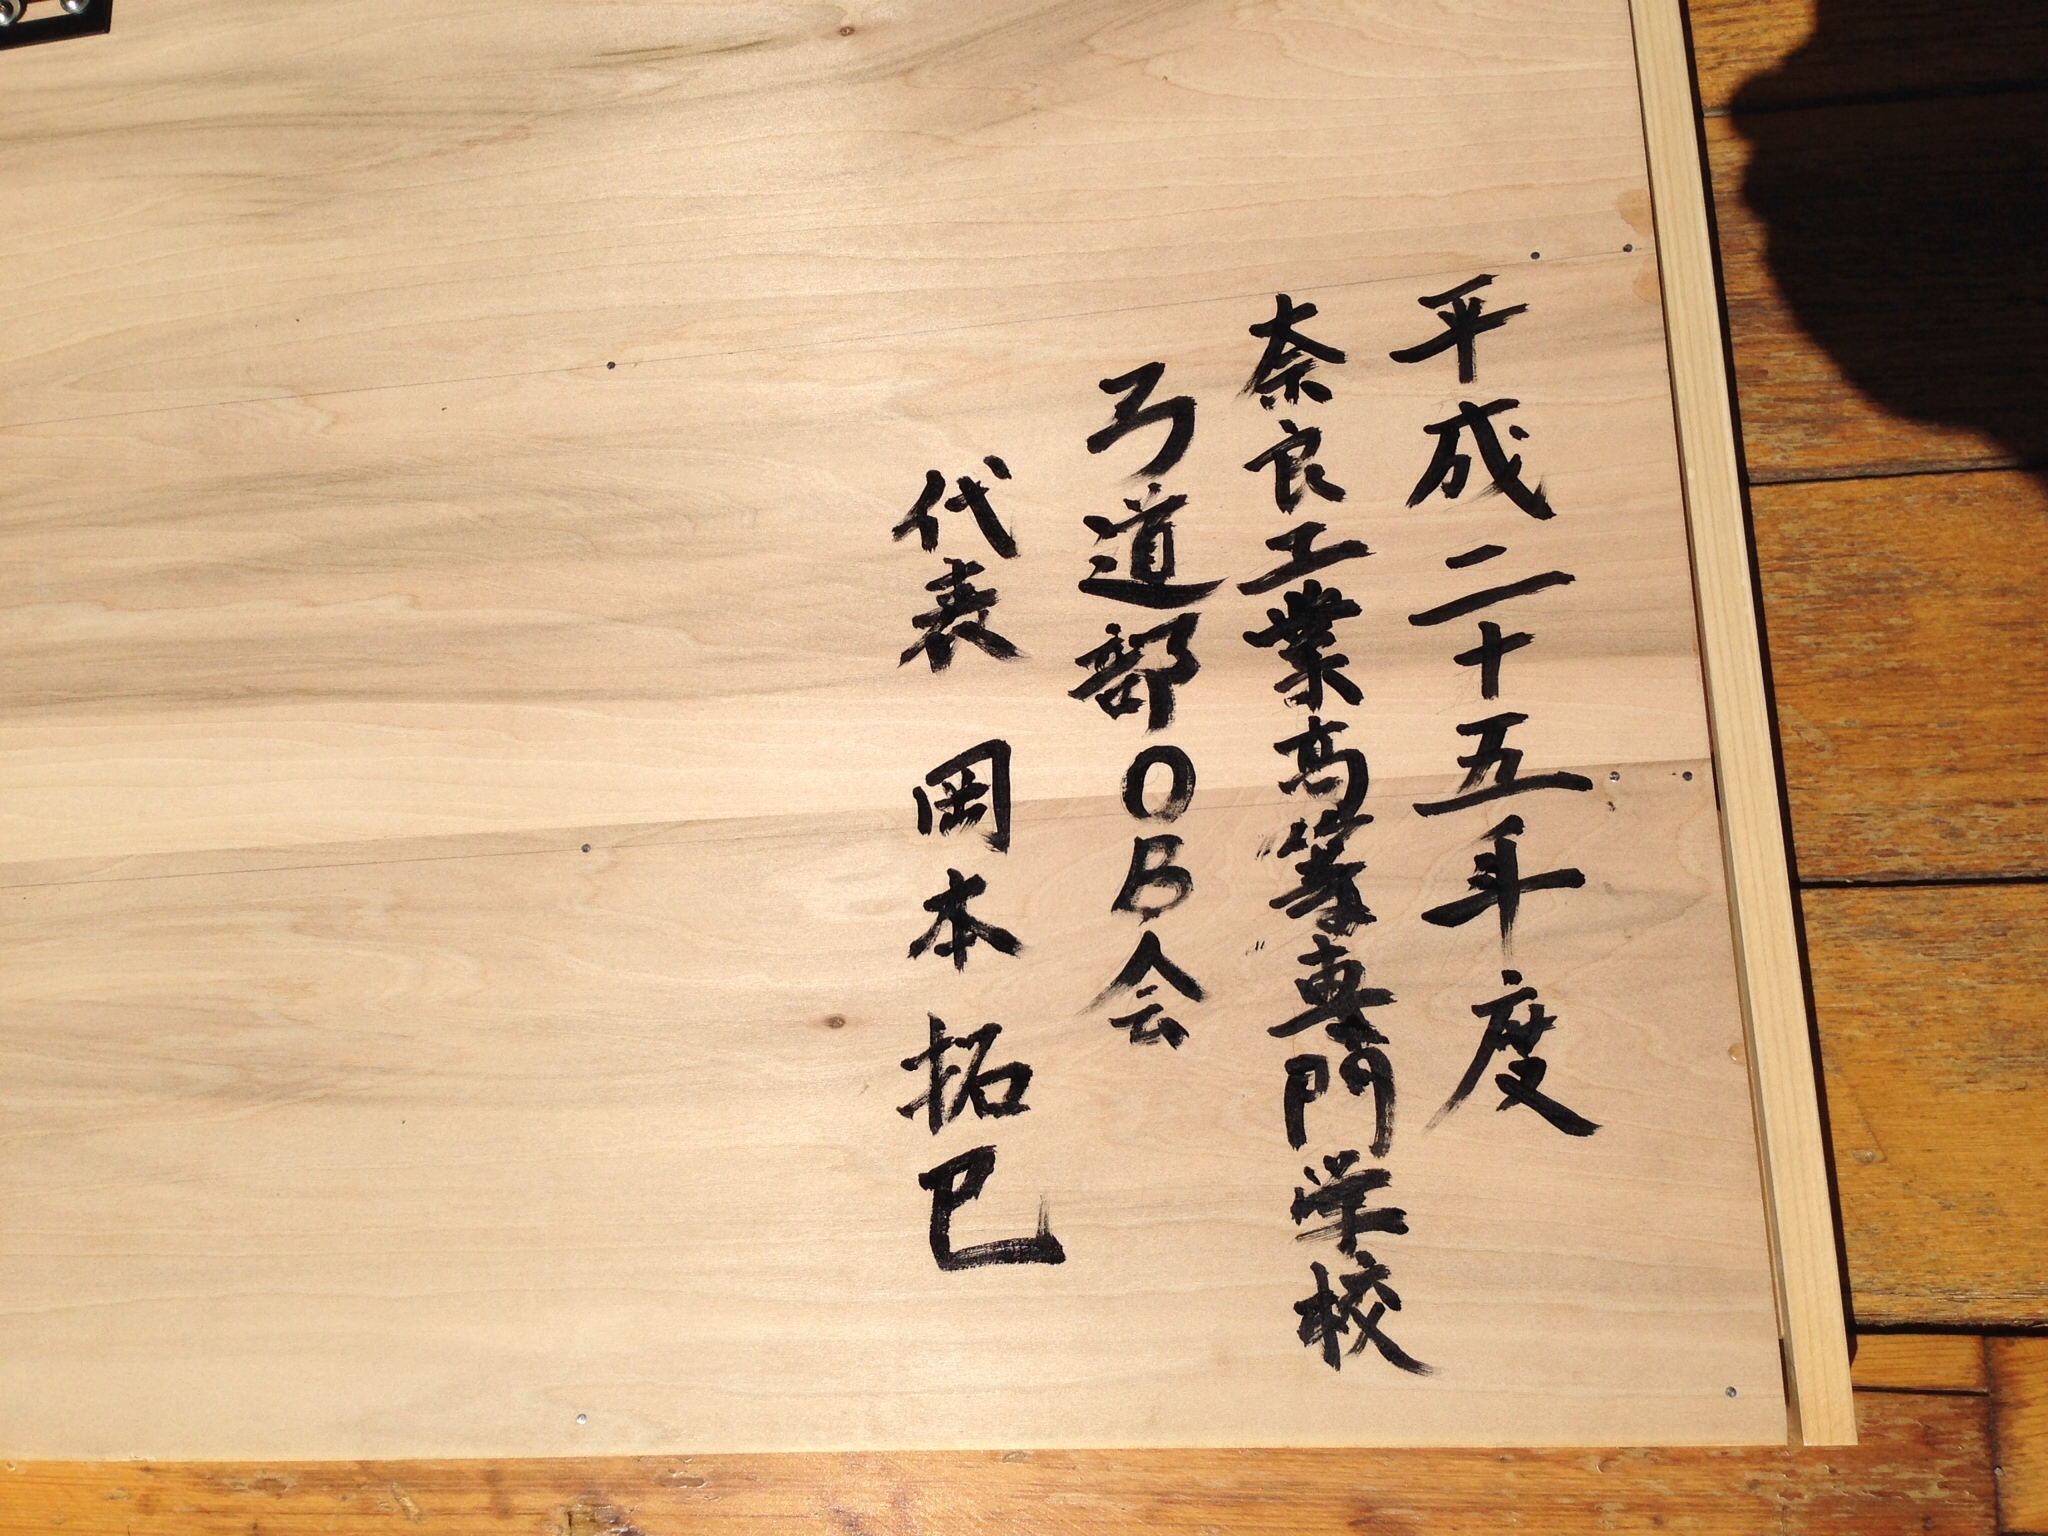 平成二十五年度
奈良工業高等専門学校
弓道部OB会
代表 岡本拓巳